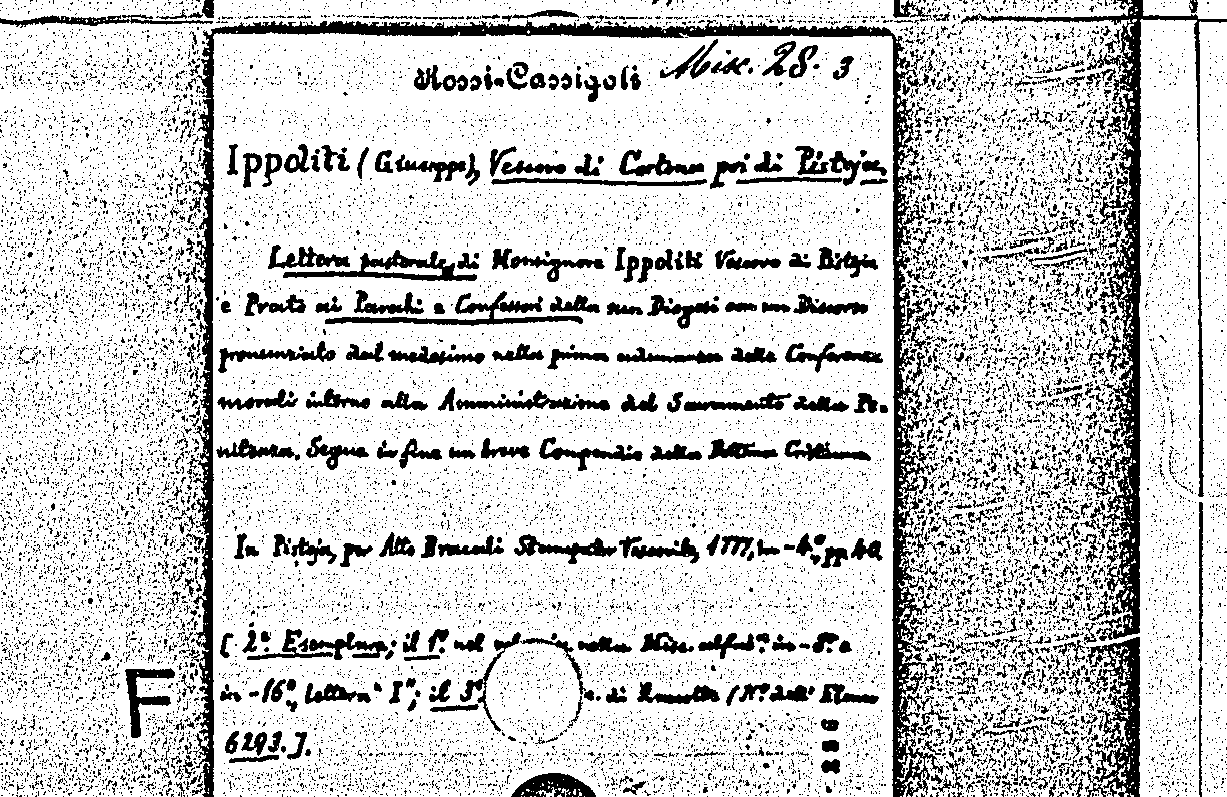 Rossi-Cassigoli Misc. 28. 3
Ippoliti (Giuseppe), Vescovo di Cortona poi di Pistoja,
Lettera pastorale di Monsignore Ippoliti Vescovo di Pistoja
e Prato ai Parochi e Confessori della sua Diogesi con un Discorso
pronunziato dal medesimo nella prima adunanza delle Conferenze
morali intorno alla Amministrazione del Sacramento della Pe-
nitenza. Segue in fine un breve Compendio della Dottrina Cristiana
In Pistoja, per Atto Bracali Stampator Vescovile, 1777, in-4º, pp. 40.
[ 2º Esemplare; il 1º nel nella Misc. alfab.ª in-8º e
in-16º, lettera "I"; il 3º di Raccolta (Nº dell' Elenco
6293.].
F